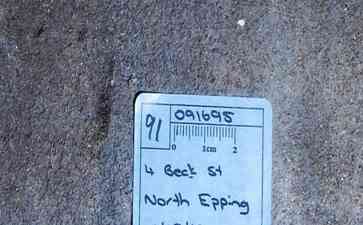 091695
91
0 1cm 2
4 Beck St
North Epping